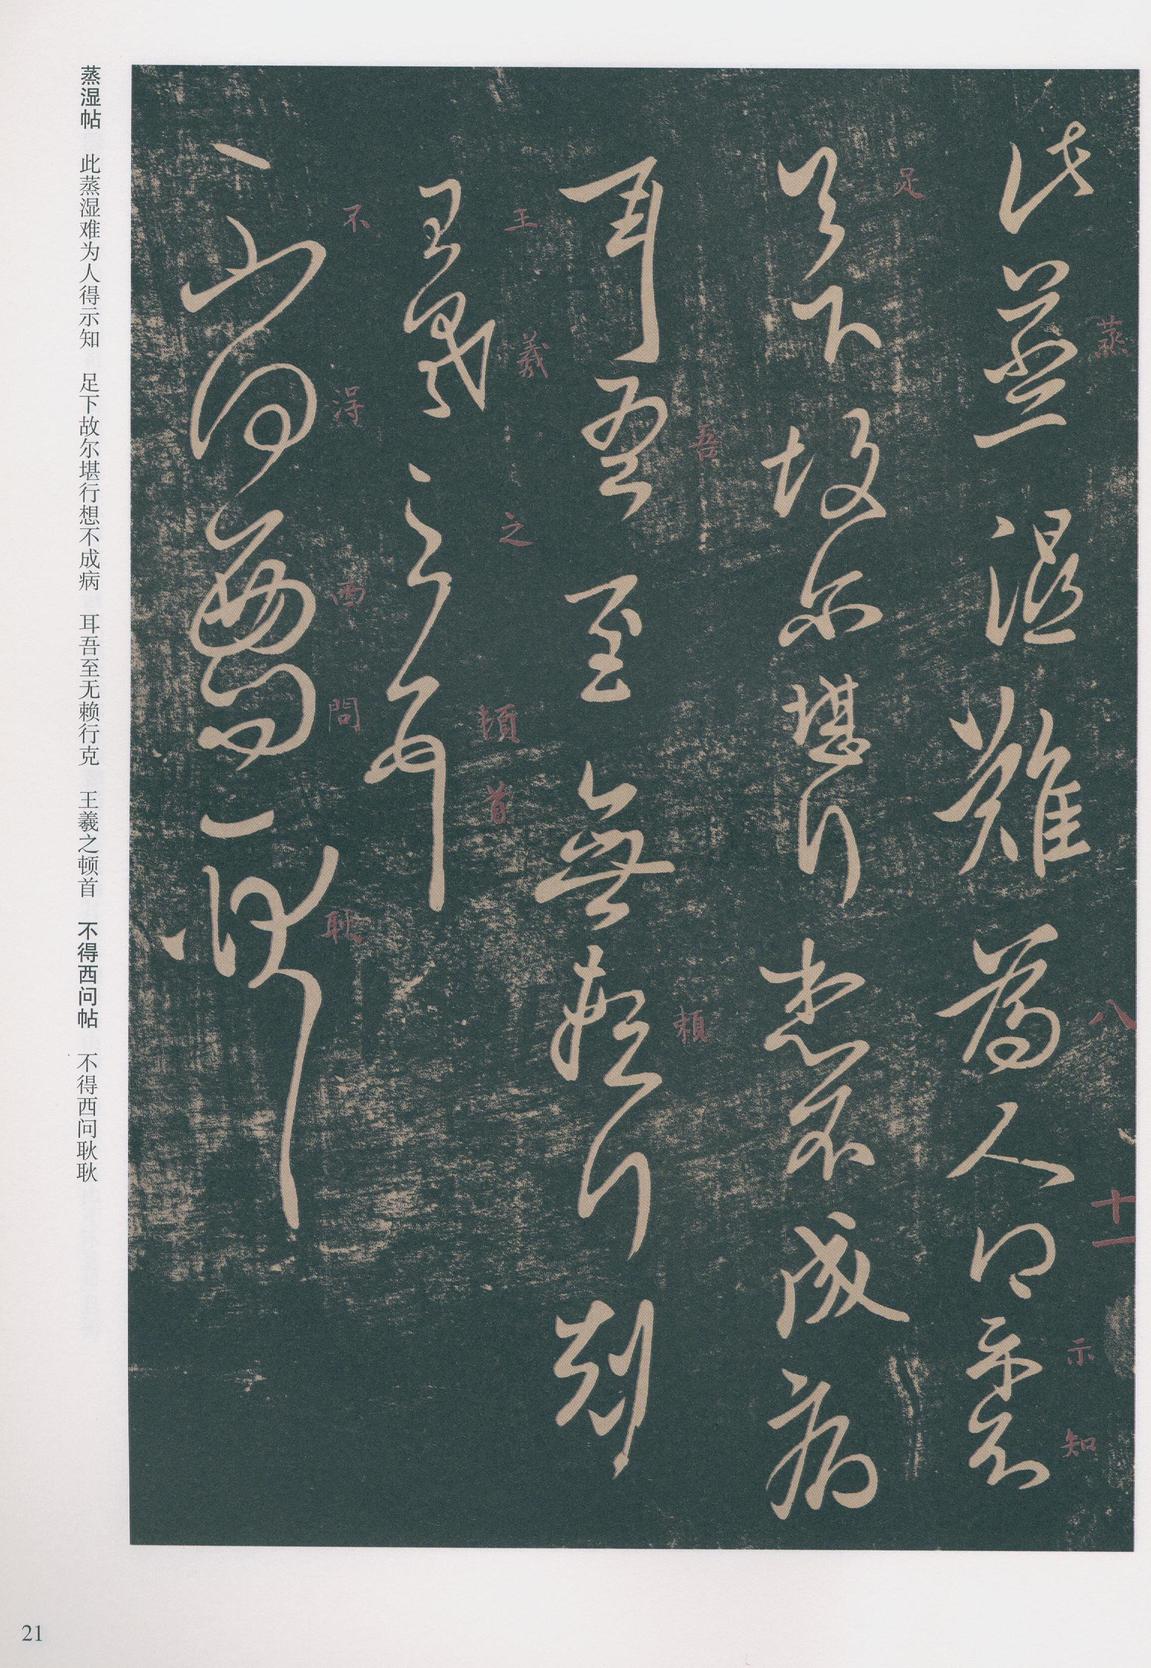 此蒸濕難為人得示知
足下故尔堪行想不成病
耳吾至無賴行剋
王羲之頓首
不得西問耿耿
蒸
八
十一
示
知
足
吾
賴
王
羲
之
頓
首
不
得
西
問
耿
蒸湿帖 此蒸湿难为人得示知 足下故尔堪行想不成病 耳吾至无赖行克 王羲之顿首 不得西问帖 不得西问耿耿
21